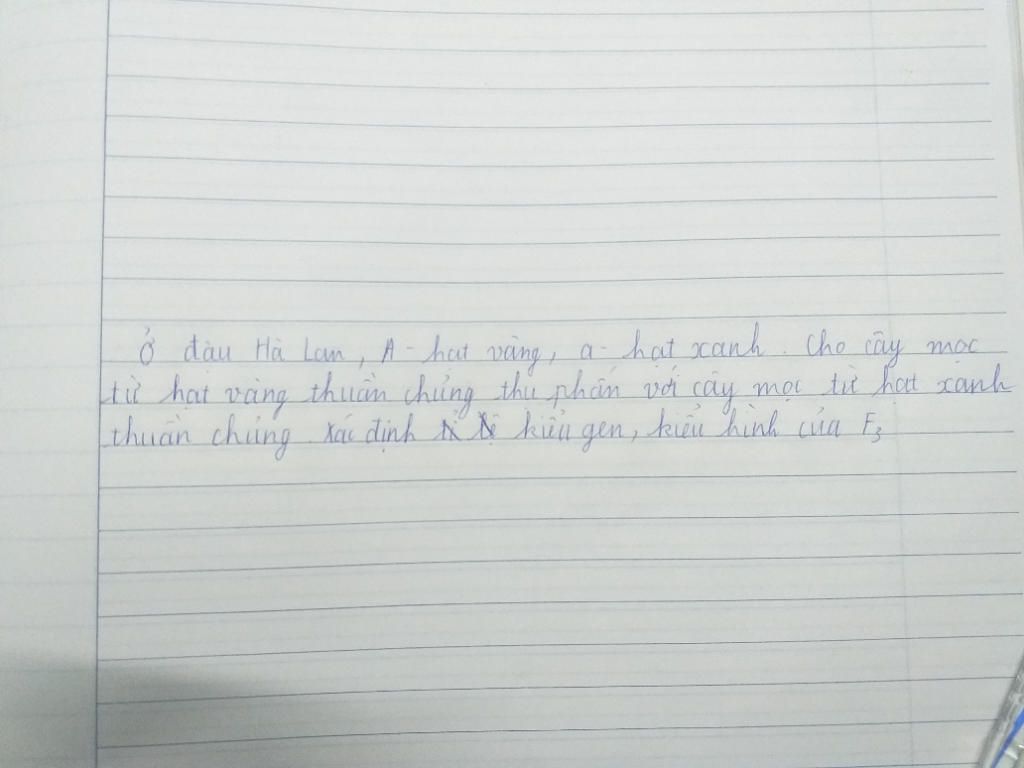 Ở đậu Hà Lan, A - hạt vàng, a - hạt xanh. Cho cây mọc
từ hạt vàng thuần chủng thụ phấn với cây mọc từ hạt xanh
thuần chủng. Xác định kiểu gen, kiểu hình của F3